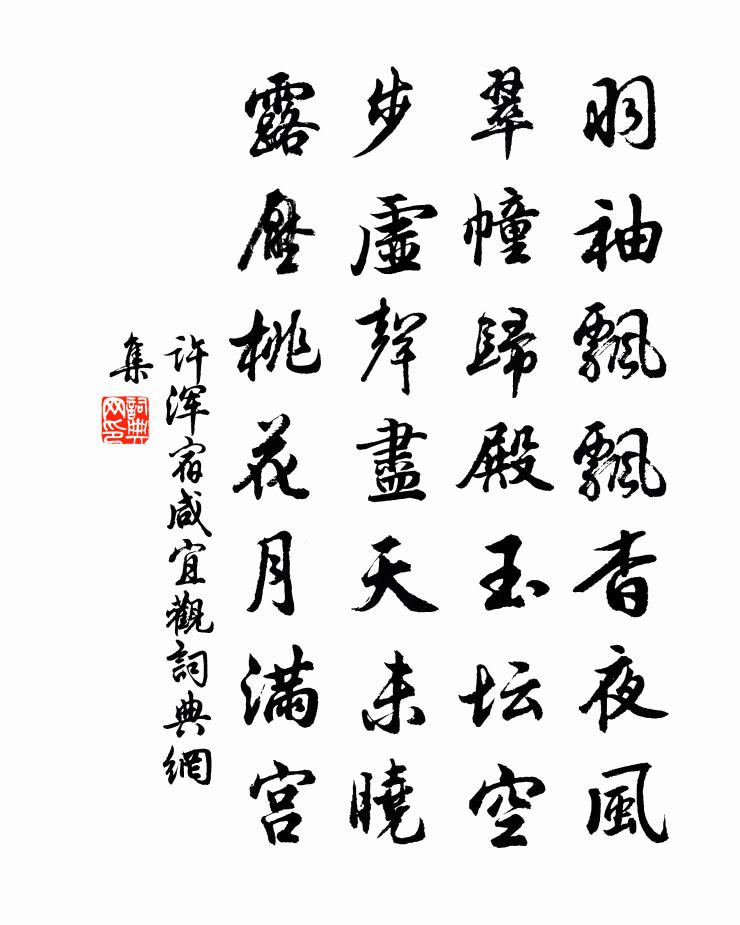 羽袖飄飄香夜風
翠幢歸殿玉坛空
步虛聲盡天未曉
露壓桃花月满宫
许浑宿咸宜觀詞典網
集
詞典
网印